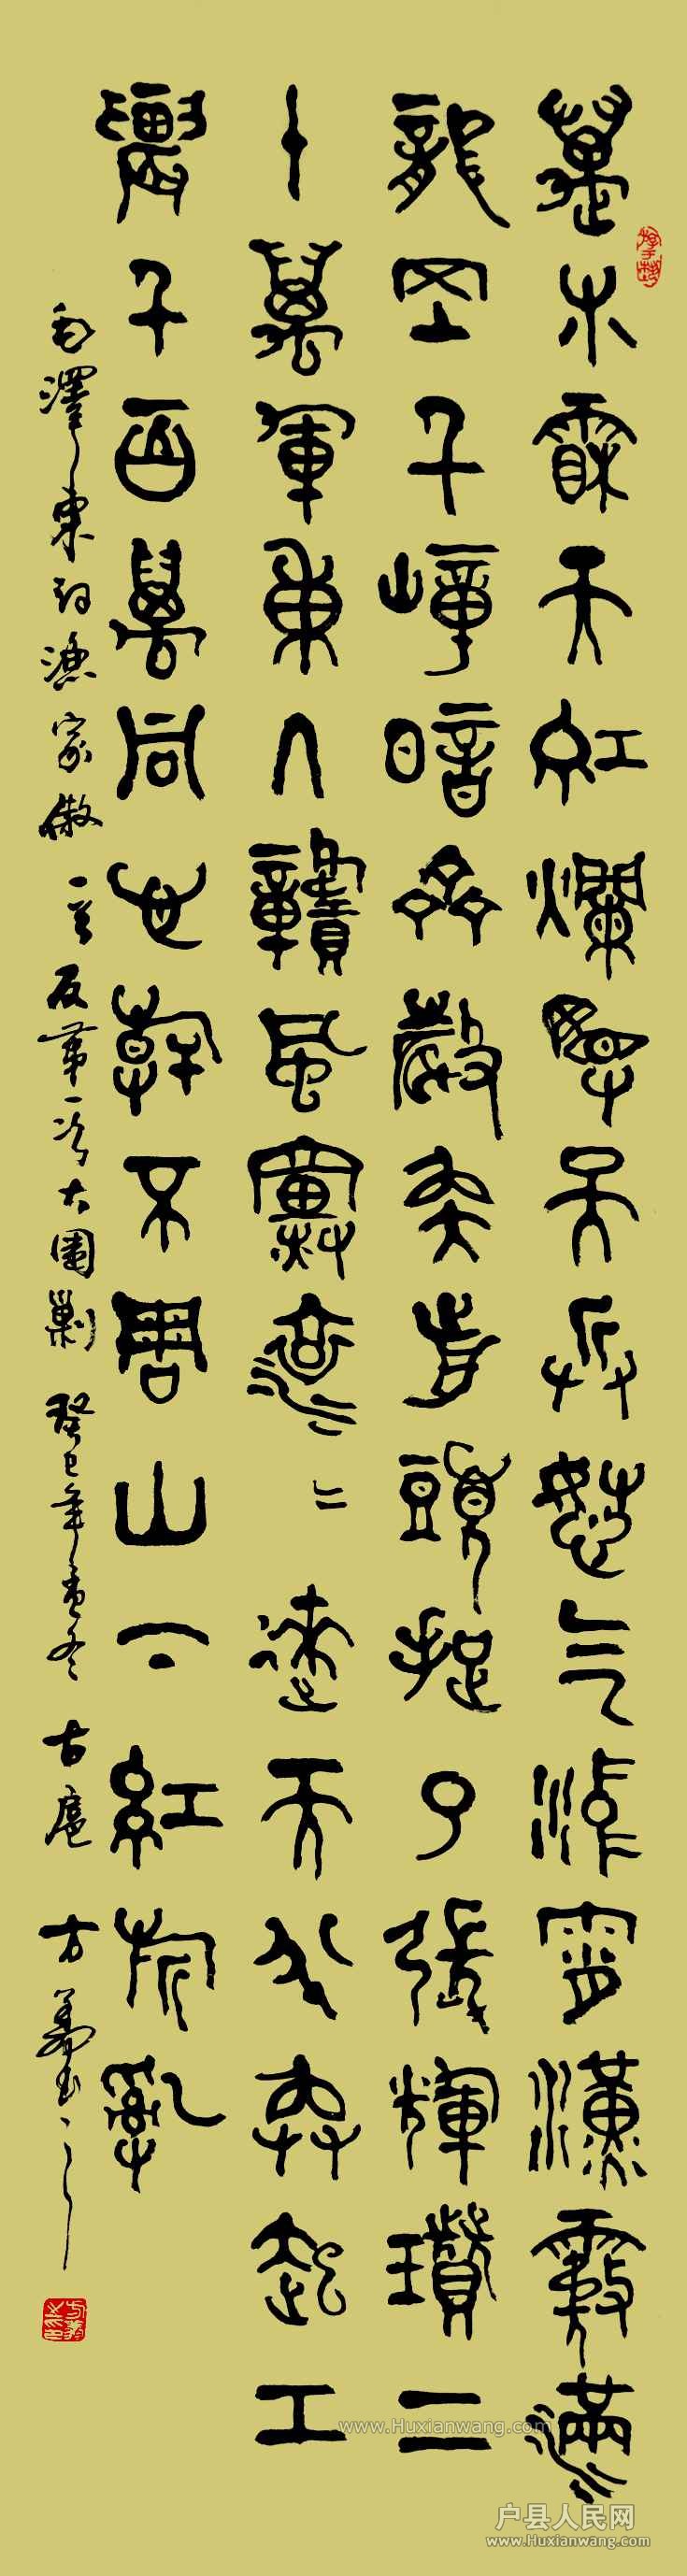 萬木霜天紅爛曼天兵怒气沖霄漢霧滿
龍岡千嶂暗齊聲奂前頭捉了張輝瓚二
十萬軍重入贛風煙滾〻來天半奂起工
農千百萬同心幹不周山下紅旂亂
毛澤東詞漁家傲一首反第一次大圍剿 癸巳年孟冬 古扈
www.Huxianwang.com
户县人民网
www.Huxianwang.com